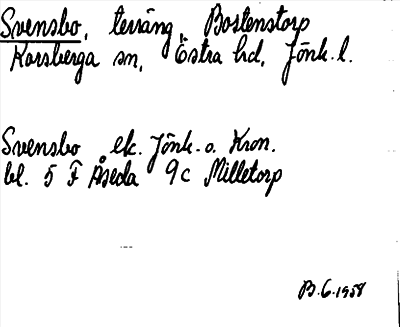 Svensbo, terräng, Bostenstorp
Korsberga sn, Östra hd, Jönk. l.
Svensbo ek. Jönk. o. Kron.
bl. 5 F Åseda 9c Milletorp
B.G. 1958